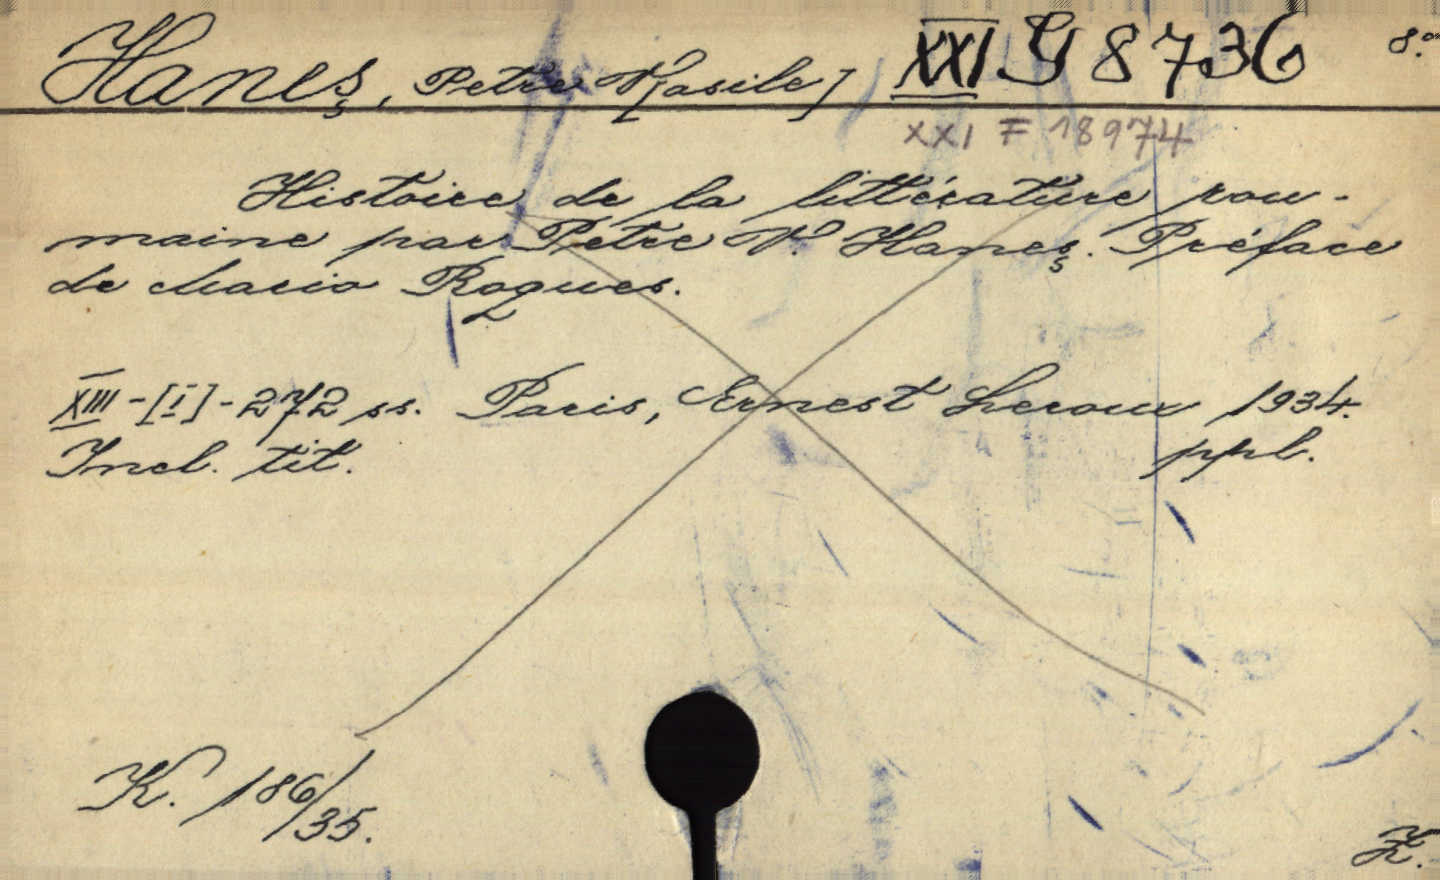 Haneș, Petre V[asile] XXI G 8736 8.°
XXI F 18974
Histoire de la littérature rou-
maine par Petre V. Haneș. Préface
de Mario Roques.
XIII-[I]-272 ss. Paris, Ernest Leroux 1934.
Incl. tit. ppl.
K. 186/35.
Ž.